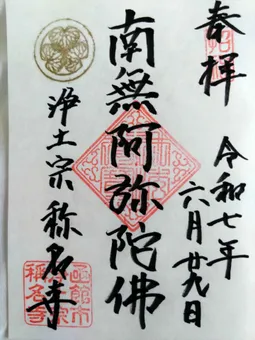 奉拝
令和七年
六月廿九日
南無阿弥陀佛
浄土宗 称名寺
函館市
稱名寺